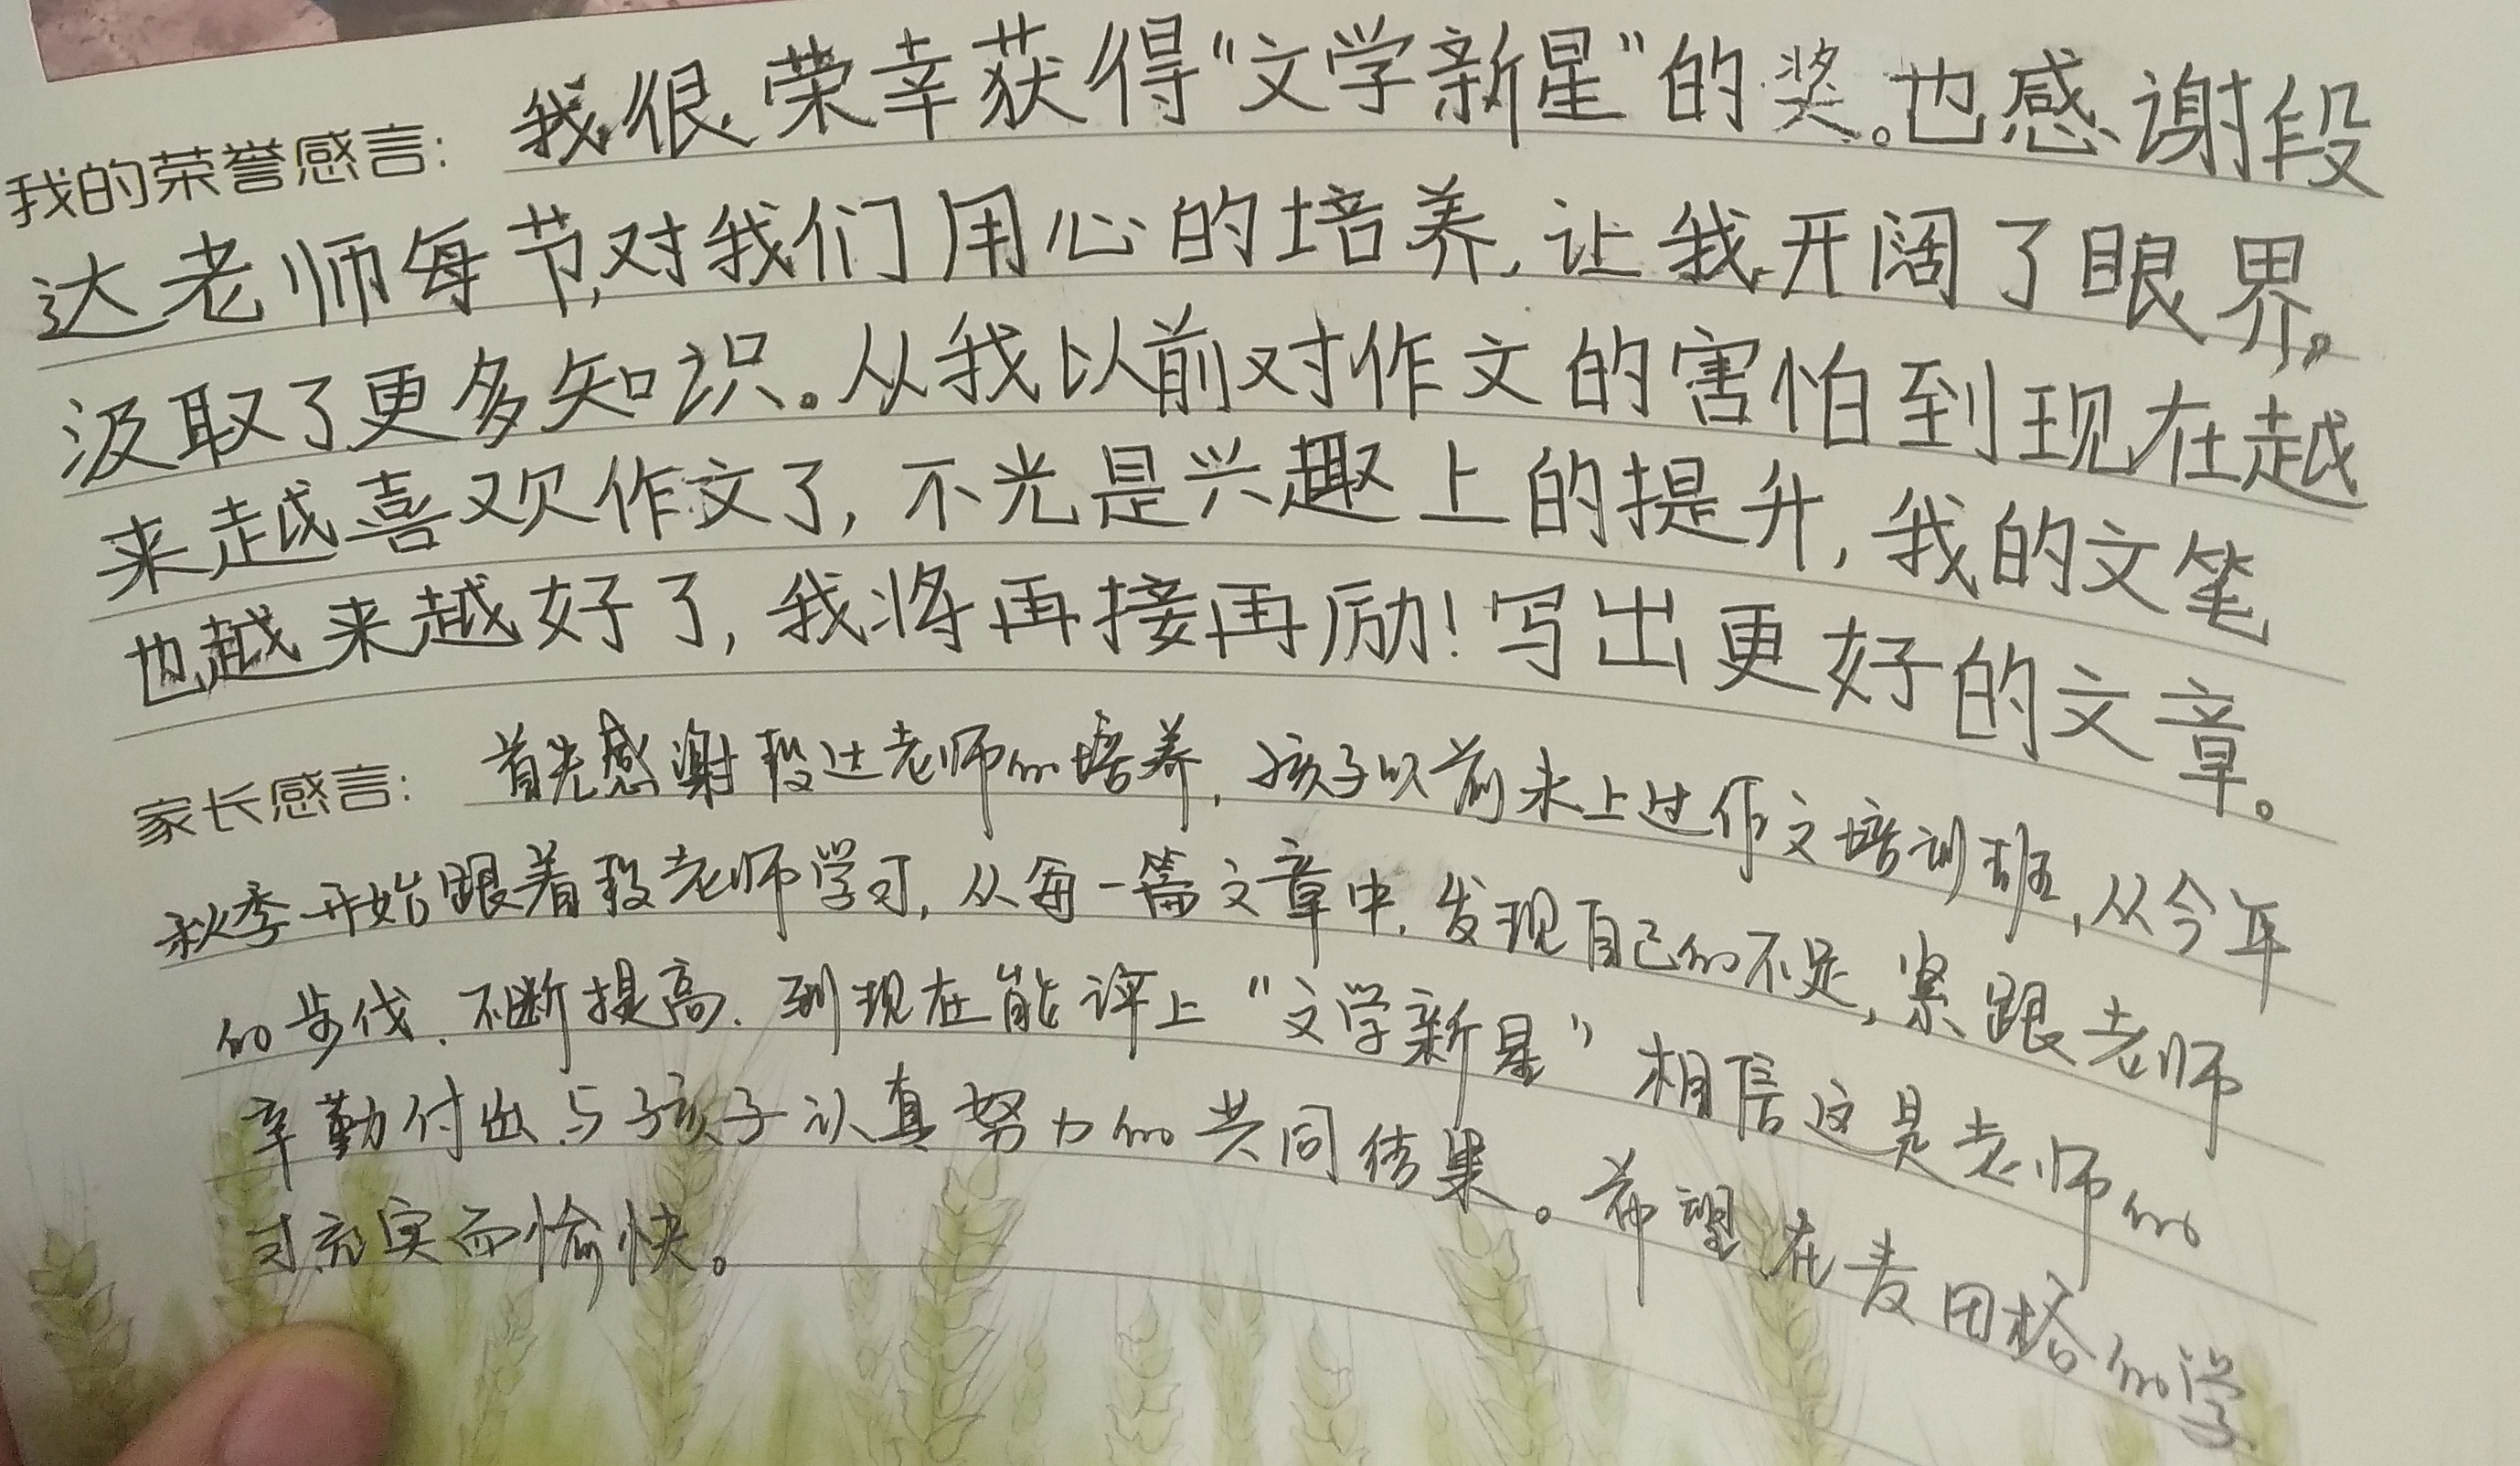 我的荣誉感言：我很荣幸获得“文学新星”的奖。也感谢段
达老师每节,对我们用心的培养,让我开阔了眼界,
汲取了更多知识。从我以前对作文的害怕到现在越
来越喜欢作文了,不光是兴趣上的提升,我的文笔
也越来越好了,我将再接再励!写出更好的文章。
家长感言：首先感谢段达老师的培养,孩子以前未上过作文培训班,从今年
秋季开始跟着段老师学习,从每一篇文章中,发现自己的不足,紧跟老师
的步伐,不断提高,到现在能评上“文学新星”相信这是老师的
辛勤付出与孩子认真努力的共同结果。希望在麦田格的学
习充实而愉快。